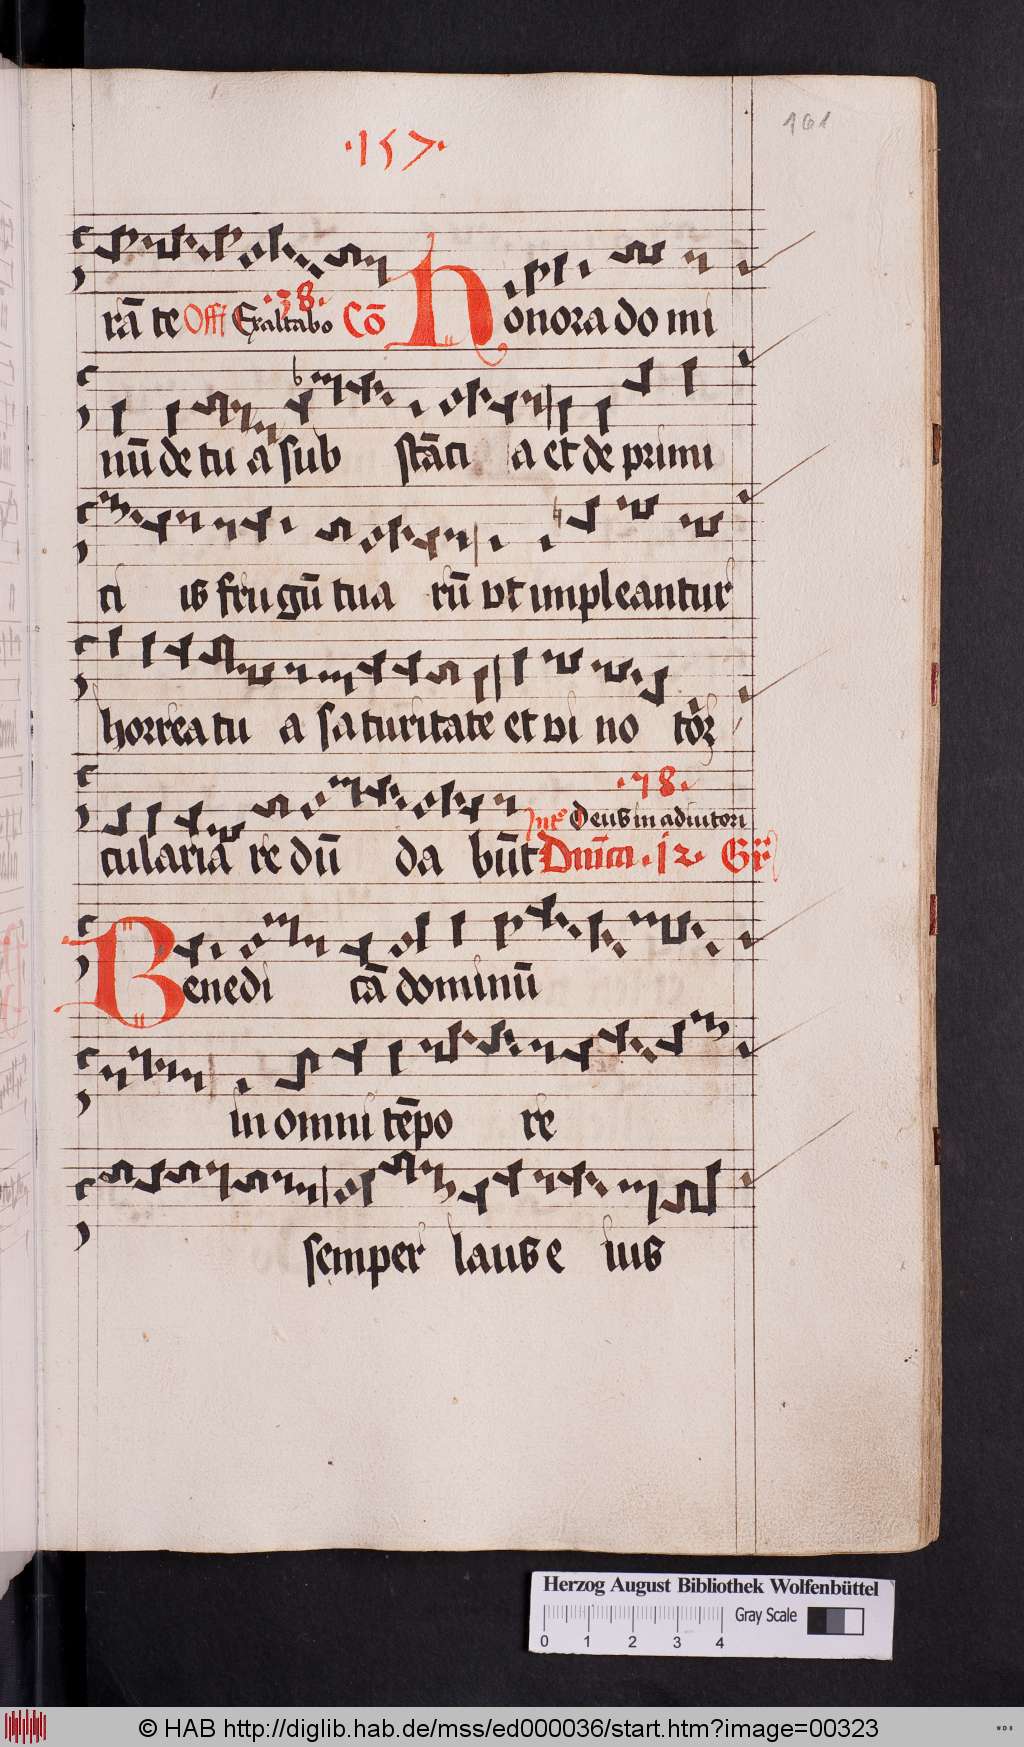 ·157·
161
rā te Offī Exaltabo ·78· Cō Honora domi
nū de tu a sub stāci a et de primi
ci is frugū tua rū vt impleantur
horrea tu a saturitate et vi no torꝝ
·78·
cularia re dū da būt Int° Deus in adiutori
Dnīca ·12· Gr̄
Benedi cā dominū
in omni tēpo re
semper laus e ius
Herzog August Bibliothek Wolfenbüttel
Gray Scale
0 1 2 3 4
© HAB http://diglib.hab.de/mss/ed000036/start.htm?image=00323